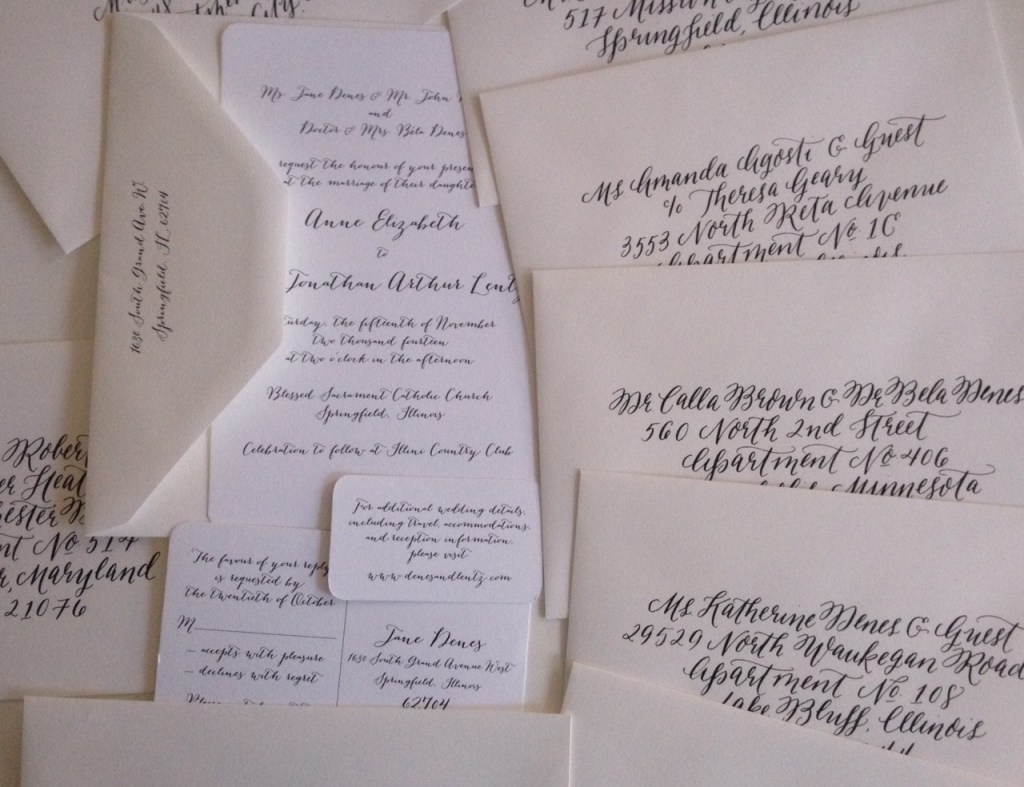 City.
517 Mission
Springfield, Illinois
1630 South Grand Ave W.
Springfield, IL 62704
Ms. Jane Denes & Mr. John
and
Doctor & Mrs. Béla Denes
request the honour of your presen
at the marriage of their daughte
Anne Elizabeth
to
Jonathan Arthur Lentz
urday, the fifteenth of November
two thousand fourteen
at two o'clock in the afternoon
Blessed Sacrament Catholic Church
Springfield, Illinois
Celebration to follow at Illini Country Club
For additional wedding details,
including travel, accommodations,
and reception information,
please visit
www.denesandlentz.com
The favour of your reply
is requested by
the twentieth of October
M
– accepts with pleasure
– declines with regret
Jane Denes
1630 South Grand Avenue West
Springfield, Illinois
62704
Ms Amanda Agosti & Guest
c/o Theresa Geary
3553 North Reta Avenue
Apartment No 1C
Dr Calla Brown & Dr Bela Denes
560 North 2nd Street
Apartment No 406
Minnesota
Ms Katherine Denes & Guest
29529 North Waukegan Road
Apartment No 108
Lake Bluff, Illinois
Robert
er Heat
hester
nt No 514
r, Maryland
21076